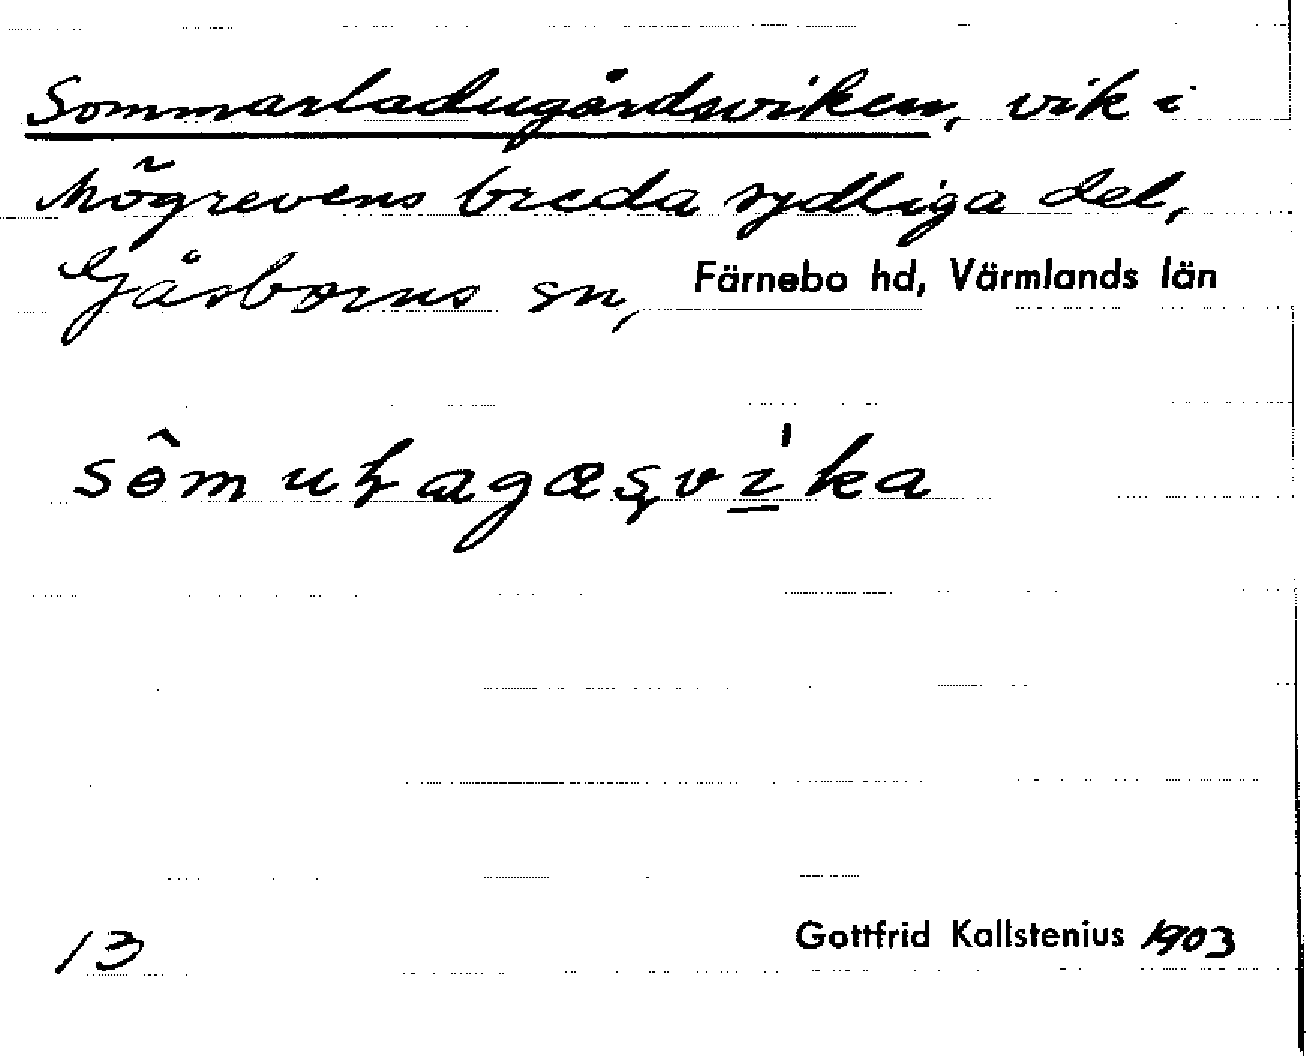 Sommarladugårdsviken, vik i
Mögrevens breda sydliga del,
Gåsborns sn, Färnebo hd, Värmlands län
13
Gottfrid Kallstenius 1903